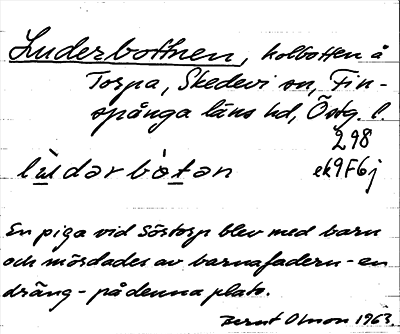 Luderbottnen, kolbotten å
Torpa, Skedevi sn, Fin-
spånga läns hd, Östg. l.
298
lùdərbòtən ek9F6j
En piga vid Söstorp blev med barn
och mördades av barnafadern - en
dräng - på denna plats.
Bernt Olsson 1963.